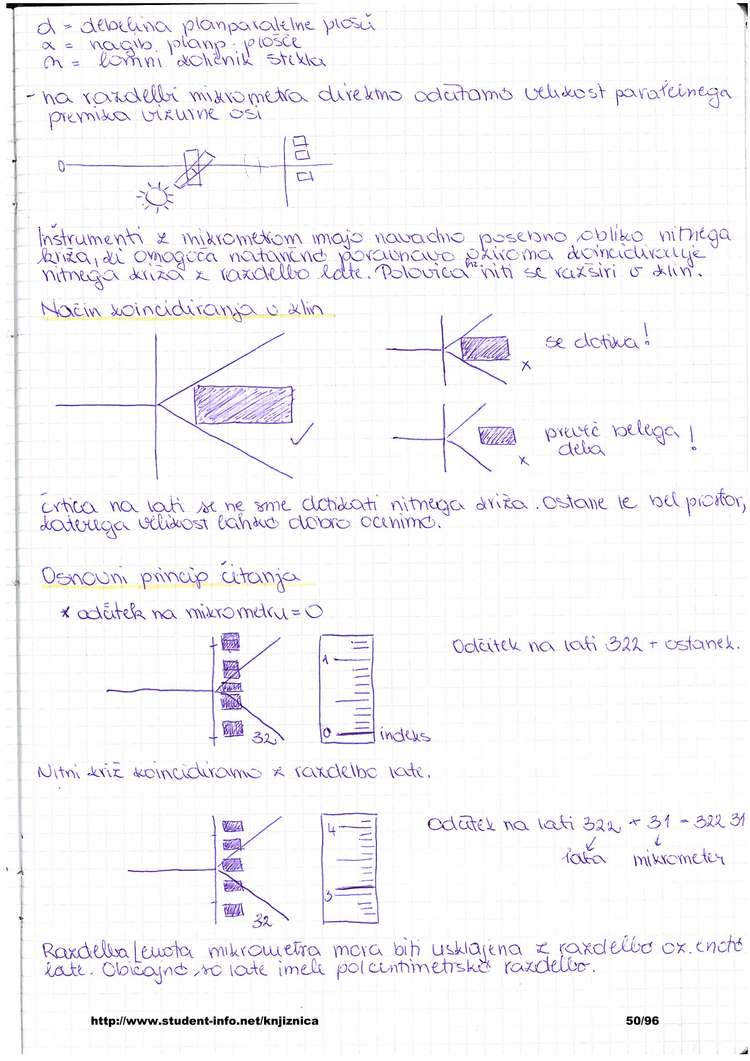 d = debelina planparalelne plošči
α = nagib planp. plošče
n = lomni količnik stekla
- na razdelbi mikrometra direktno odčitamo velikost paralelnega
premika vizurne osi
Inštrumenti z mikrometrom imajo navadno posebno obliko nitnega
križa, ki omogoča natančno poravnavo oziroma koincidiranje
nitnega križa z razdelbo late. Polovica niti se razširi v klin.
Način koincidiranja v klin
se dotika!
x
preveč belega
dela !
x
črtica na lati se ne sme dotikati nitnega križa. Ostane le bel prostor,
katerega velikost lahko dobro ocenimo.
Osnovni princip čitanja
* odčitek na mikrometru = 0
Odčitek na lati 322 + ostanek.
1
0
32
indeks
Nitni križ koincidiramo z razdelbo late.
Odčitek na lati 322 + 31 = 322 31
lata mikrometer
4
3
32
Razdelba/enota mikrometra mora biti usklajena z razdelbo oz. enoto
late. Običajno so late imele polcentimetrsko razdelbo.
http://www.student-info.net/knjiznica 50/96